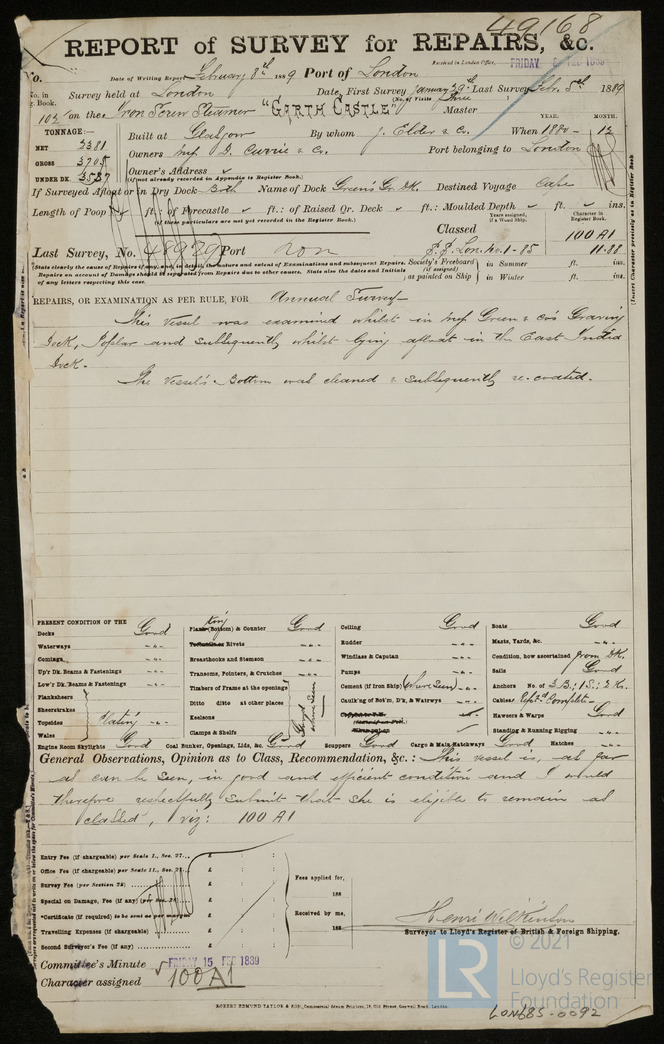 49168
REPORT of SURVEY for REPAIRS, &c.
Received in London Office, FRIDAY 8 FEB 1889
No. Date of Writing Report February 8th 1889 Port of London
No. in Reg. Book. Survey held at London Date, First Survey January 29th Last Survey Feby. 5th 1889
(No. of Visits Three
102 on the Iron Screw Steamer "GARTH CASTLE" Master
TONNAGE:— YEAR. MONTH.
NET 2381 Built at Glasgow By whom J. Elder & Co. When 1880 - 12
GROSS 3705 Owners D. Currie & Co. Port belonging to London
UNDER DK. 3537 Owner's Address
(if not already recorded in Appendix to Register Book.)
If Surveyed Afloat or in Dry Dock Both Name of Dock Green's Gr. Dk. Destined Voyage Cape
Length of Poop ft.: of Forecastle ft.: of Raised Qr. Deck ft.: Moulded Depth ft. ins.
(if these particulars are not yet recorded in the Register Book.)
Years assigned, if a Wood Ship.
Character in Register Book.
Classed 100 A1
Last Survey, No. 48929 Port Lon S.S. Lon. No. 1-85 11.88
(State clearly the cause of Repairs, if any, and in detail, the nature and extent of Examinations and subsequent Repairs.
Repairs on account of Damage should be separated from Repairs due to other causes. State also the dates and Initials
of any letters respecting this case.
Society's Freeboard (if assigned) as painted on Ship in Summer ft. ins.
in Winter ft. ins.
(Insert Character precisely as in Register Book
REPAIRS, OR EXAMINATION AS PER RULE, FOR Annual Survey
This vessel was examined whilst in Messrs Green & Co's Graving
Dock, Poplar and subsequently whilst lying afloat in the East India
Dock.
The Vessel's Bottom was cleaned & subsequently re-coated.
PRESENT CONDITION OF THE
Decks Good
Waterways
Comings
Up'r Dk. Beams & Fastenings
Low'r Dk. Beams & Fastenings
Planksheers
Sheerstrakes
Topsides Plating
Wales
Engine Room Skylights Good
Plank (Bottom) & Counter Good
Rivets
Breasthooks and Stemson
Transoms, Pointers, & Crutches
Timbers of Frame at the openings
Ditto ditto at other places
Keelsons
Clamps & Shelfs
Good where seen
Coal Bunker, Openings, Lids, &c. Good
Ceiling Good
Rudder
Windlass & Capstan
Pumps
Cement (if Iron Ship) (where seen)
Caulk'ng of Bot'm, D'ks, & Watrwys
Scuppers Good Cargo & Main Hatchways Good Hatches
Boats Good
Masts, Yards, &c.
Condition, how ascertained from Dk.
Sails Good
Anchors No. of 3 B; 1 S; 2 K.
Cables Rept'd Complete
Hawsers & Warps Good
Standing & Running Rigging
General Observations, Opinion as to Class, Recommendation, &c.: This vessel is, as far
as can be seen, in good and efficient condition and I would
therefore respectfully submit that she is eligible to remain as
classed, viz: 100 A1
Entry Fee (if chargeable) per Scale I., Sec. 27 £
Office Fee (if chargeable) per Scale II., Sec. 27 £
Survey Fee (per Section 28) £
Special on Damage, Fee (if any) (per Sec. 28) £
*Certificate (if required) to be sent as per margin £
Travelling Expenses (if chargeable) £
Second Surveyor's Fee (if any) £
Fees applied for,
188
Received by me,
188
Henri Wilkinson
Surveyor to Lloyd's Register of British & Foreign Shipping.
Committee's Minute FRIDAY 15 FEB 1889
Character assigned 100 A1
ROBERT EDMUND TAYLOR & SON, Commercial Steam Printers, 19, Old Street, Goswell Road, London.
LR
© 2021
Lloyd's Register
Foundation
LON685-0092